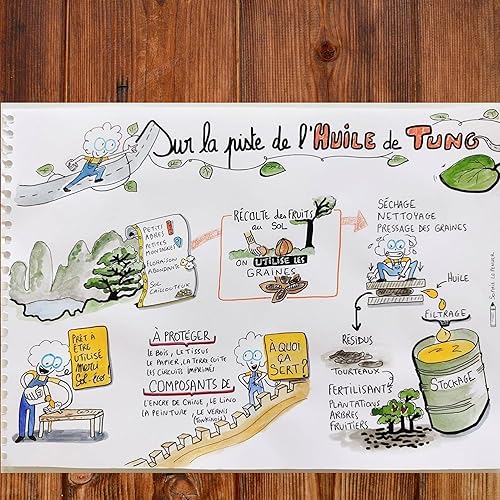 Sur la piste de l'HUILE de TUNG
PETITS
ARBRES
PETITES
MONTAGNES
FLORAISON
ABONDANTE
SOL
CAILLOUTEUX
RÉCOLTE des FRUITS
au SOL
ON UTILISE LES
GRAINES
SÉCHAGE
NETTOYAGE
PRESSAGE DES GRAINES
HUILE
FILTRAGE
STOCKAGE
RÉSIDUS
TOURTEAUX
FERTILISANTS
PLANTATIONS
ARBRES
FRUITIERS
À QUOI
ÇA
SERT?
À PROTÉGER
LE BOIS, LE TISSUS
LE PAPIER, LA TERRE CUITE
LES CIRCUITS IMPRIMÉS
COMPOSANTS DE
L'ENCRE DE CHINE, LE LINO
LA PEINTURE, LE VERNIS
(TONKINOIS)
PRÊT À
ÊTRE
UTILISÉ
merci
Sol-éco